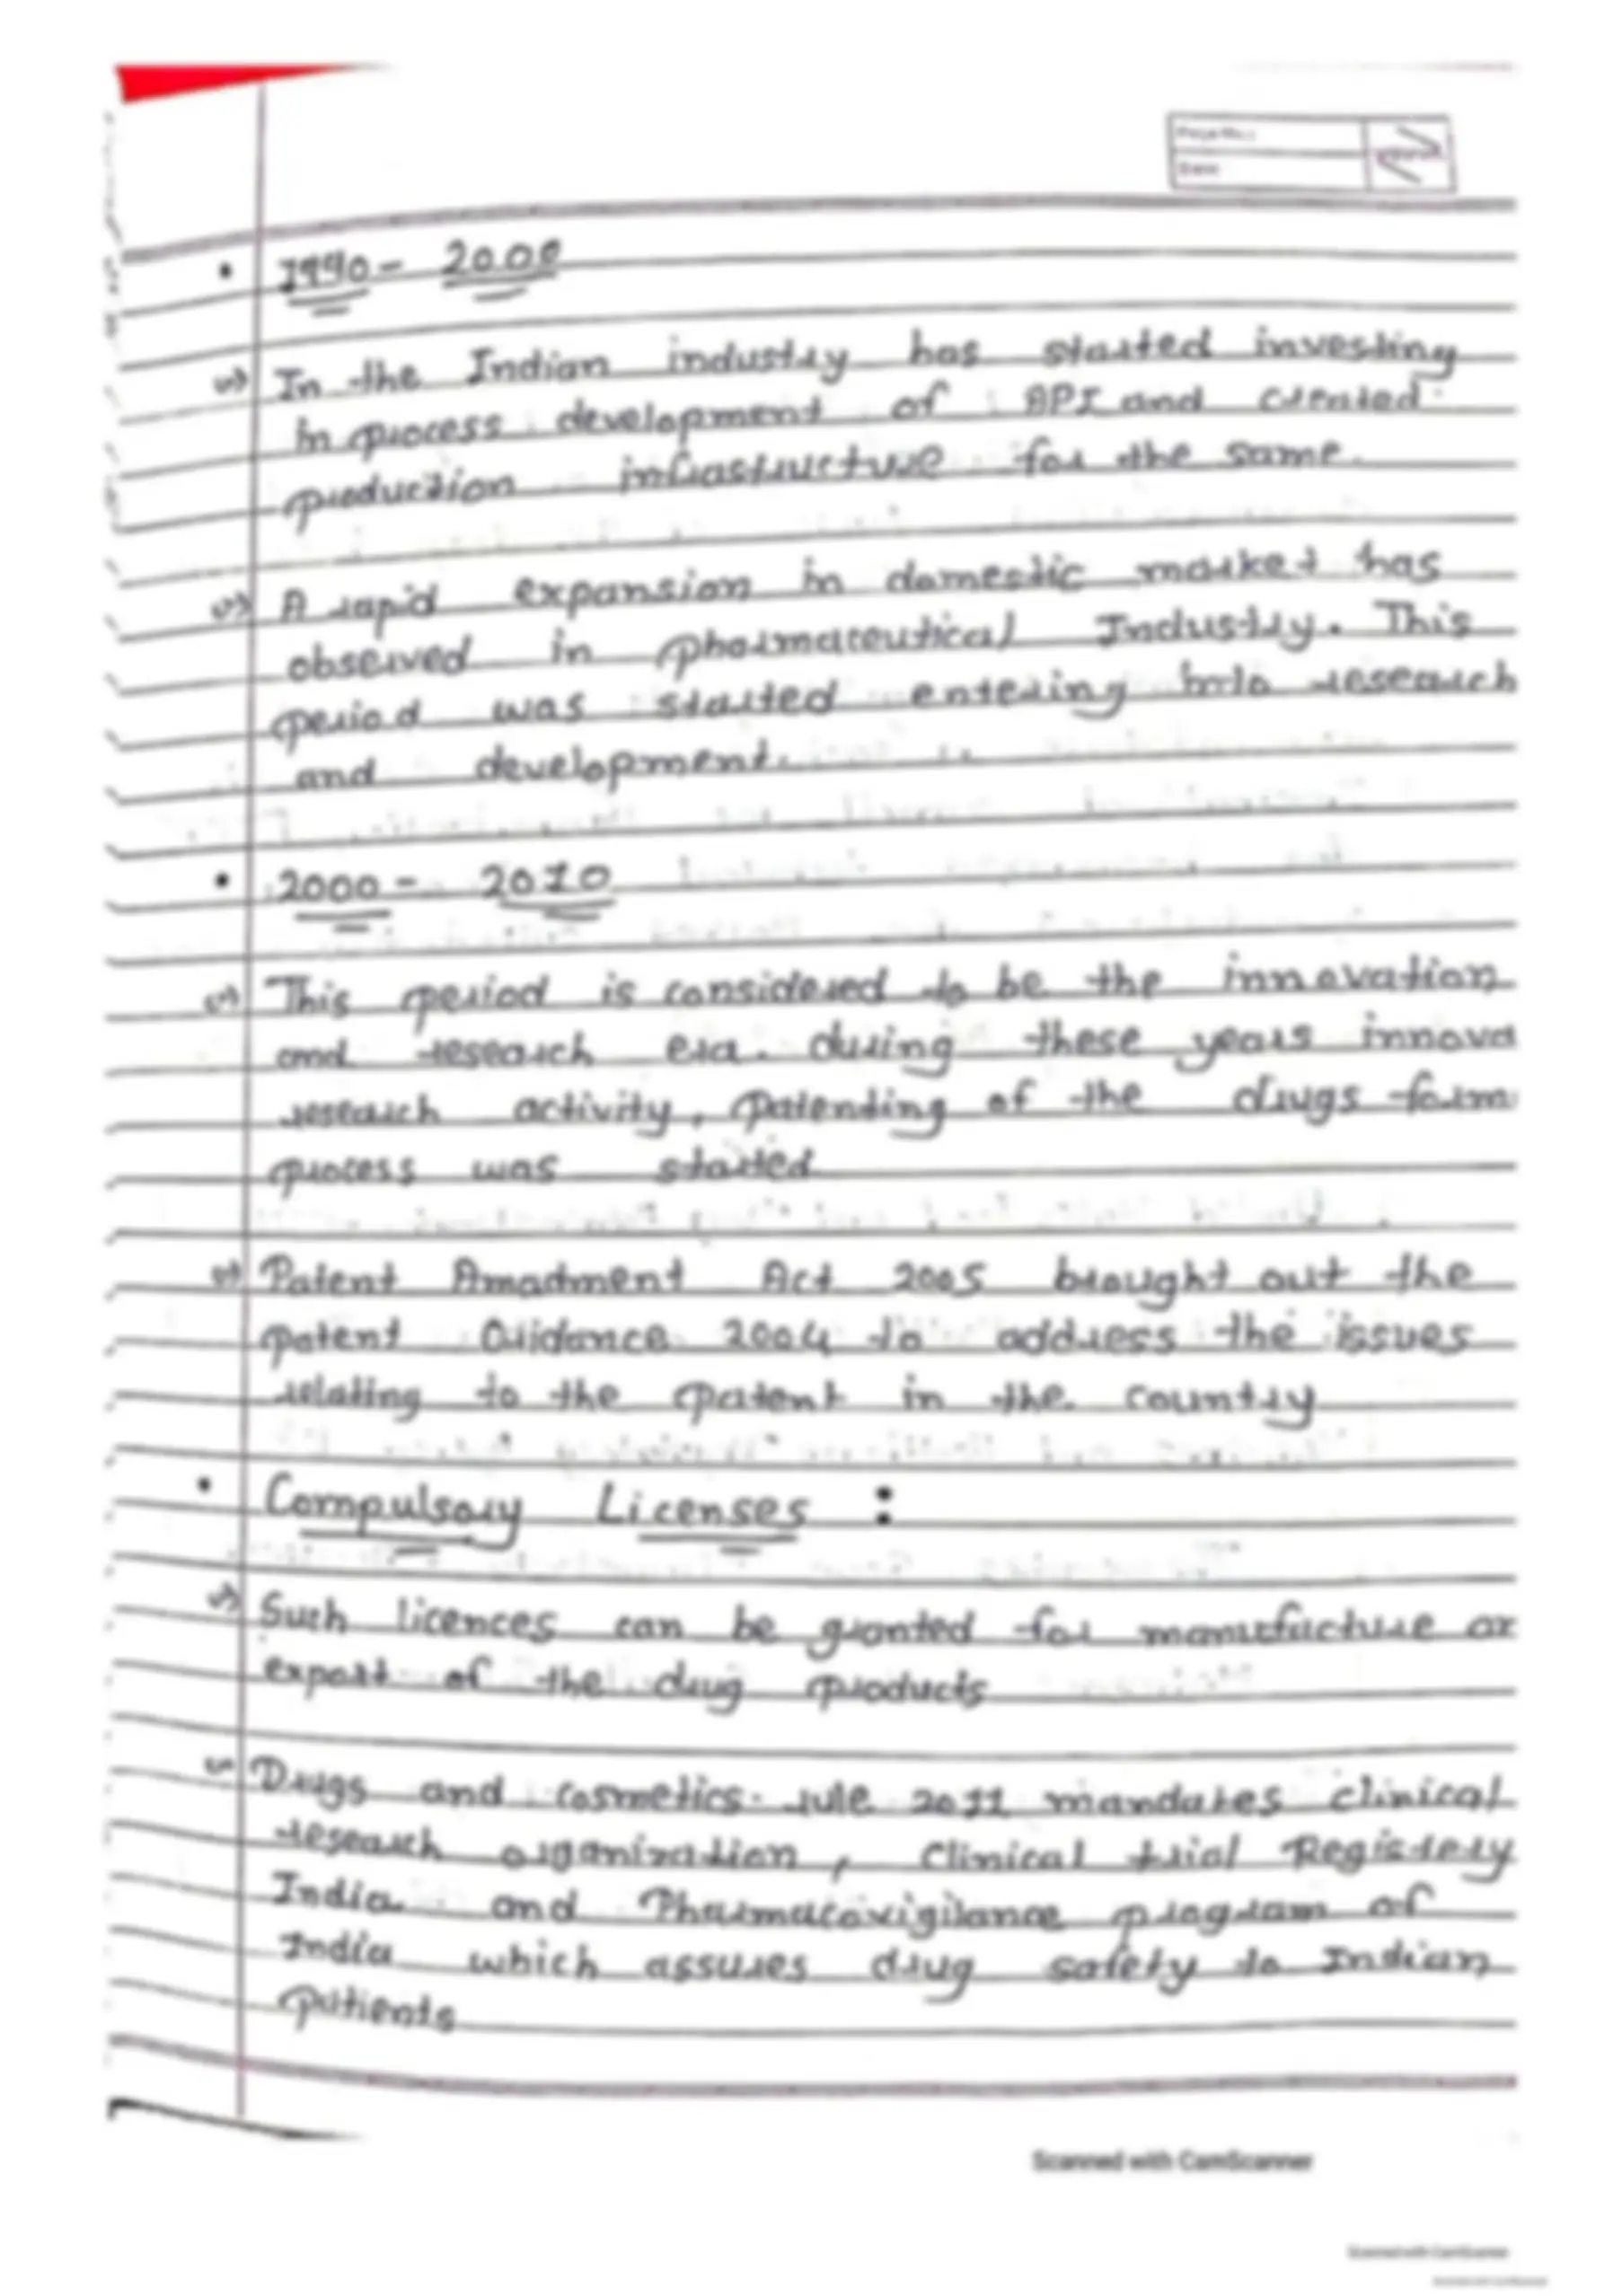 Page No.:
Date:
• 1990 - 2000
In the Indian industry has started investing
in process development of API and created
production infrastructure for the same.
A rapid expansion in domestic market has
observed in pharmaceutical Industry. This
period was started entering into research
and development.
• 2000 - 2010
This period is considered to be the innovation
and research era. during these years innova
research activity, patenting of the drugs form
process was started
Patent Amadment Act 2005 brought out the
patent Guidance 2004 to address the issues
relating to the patent in the country
• Compulsory Licenses :
Such licences can be granted for manufacture or
export of the drug products
Drugs and cosmetics rule 2011 mandates clinical
research organization, Clinical trial Registery
India and Pharmacovigilance program of
India which assures drug safety to Indian
patients
Scanned with CamScanner
Scanned with CamScanner
Scanned with CamScanner